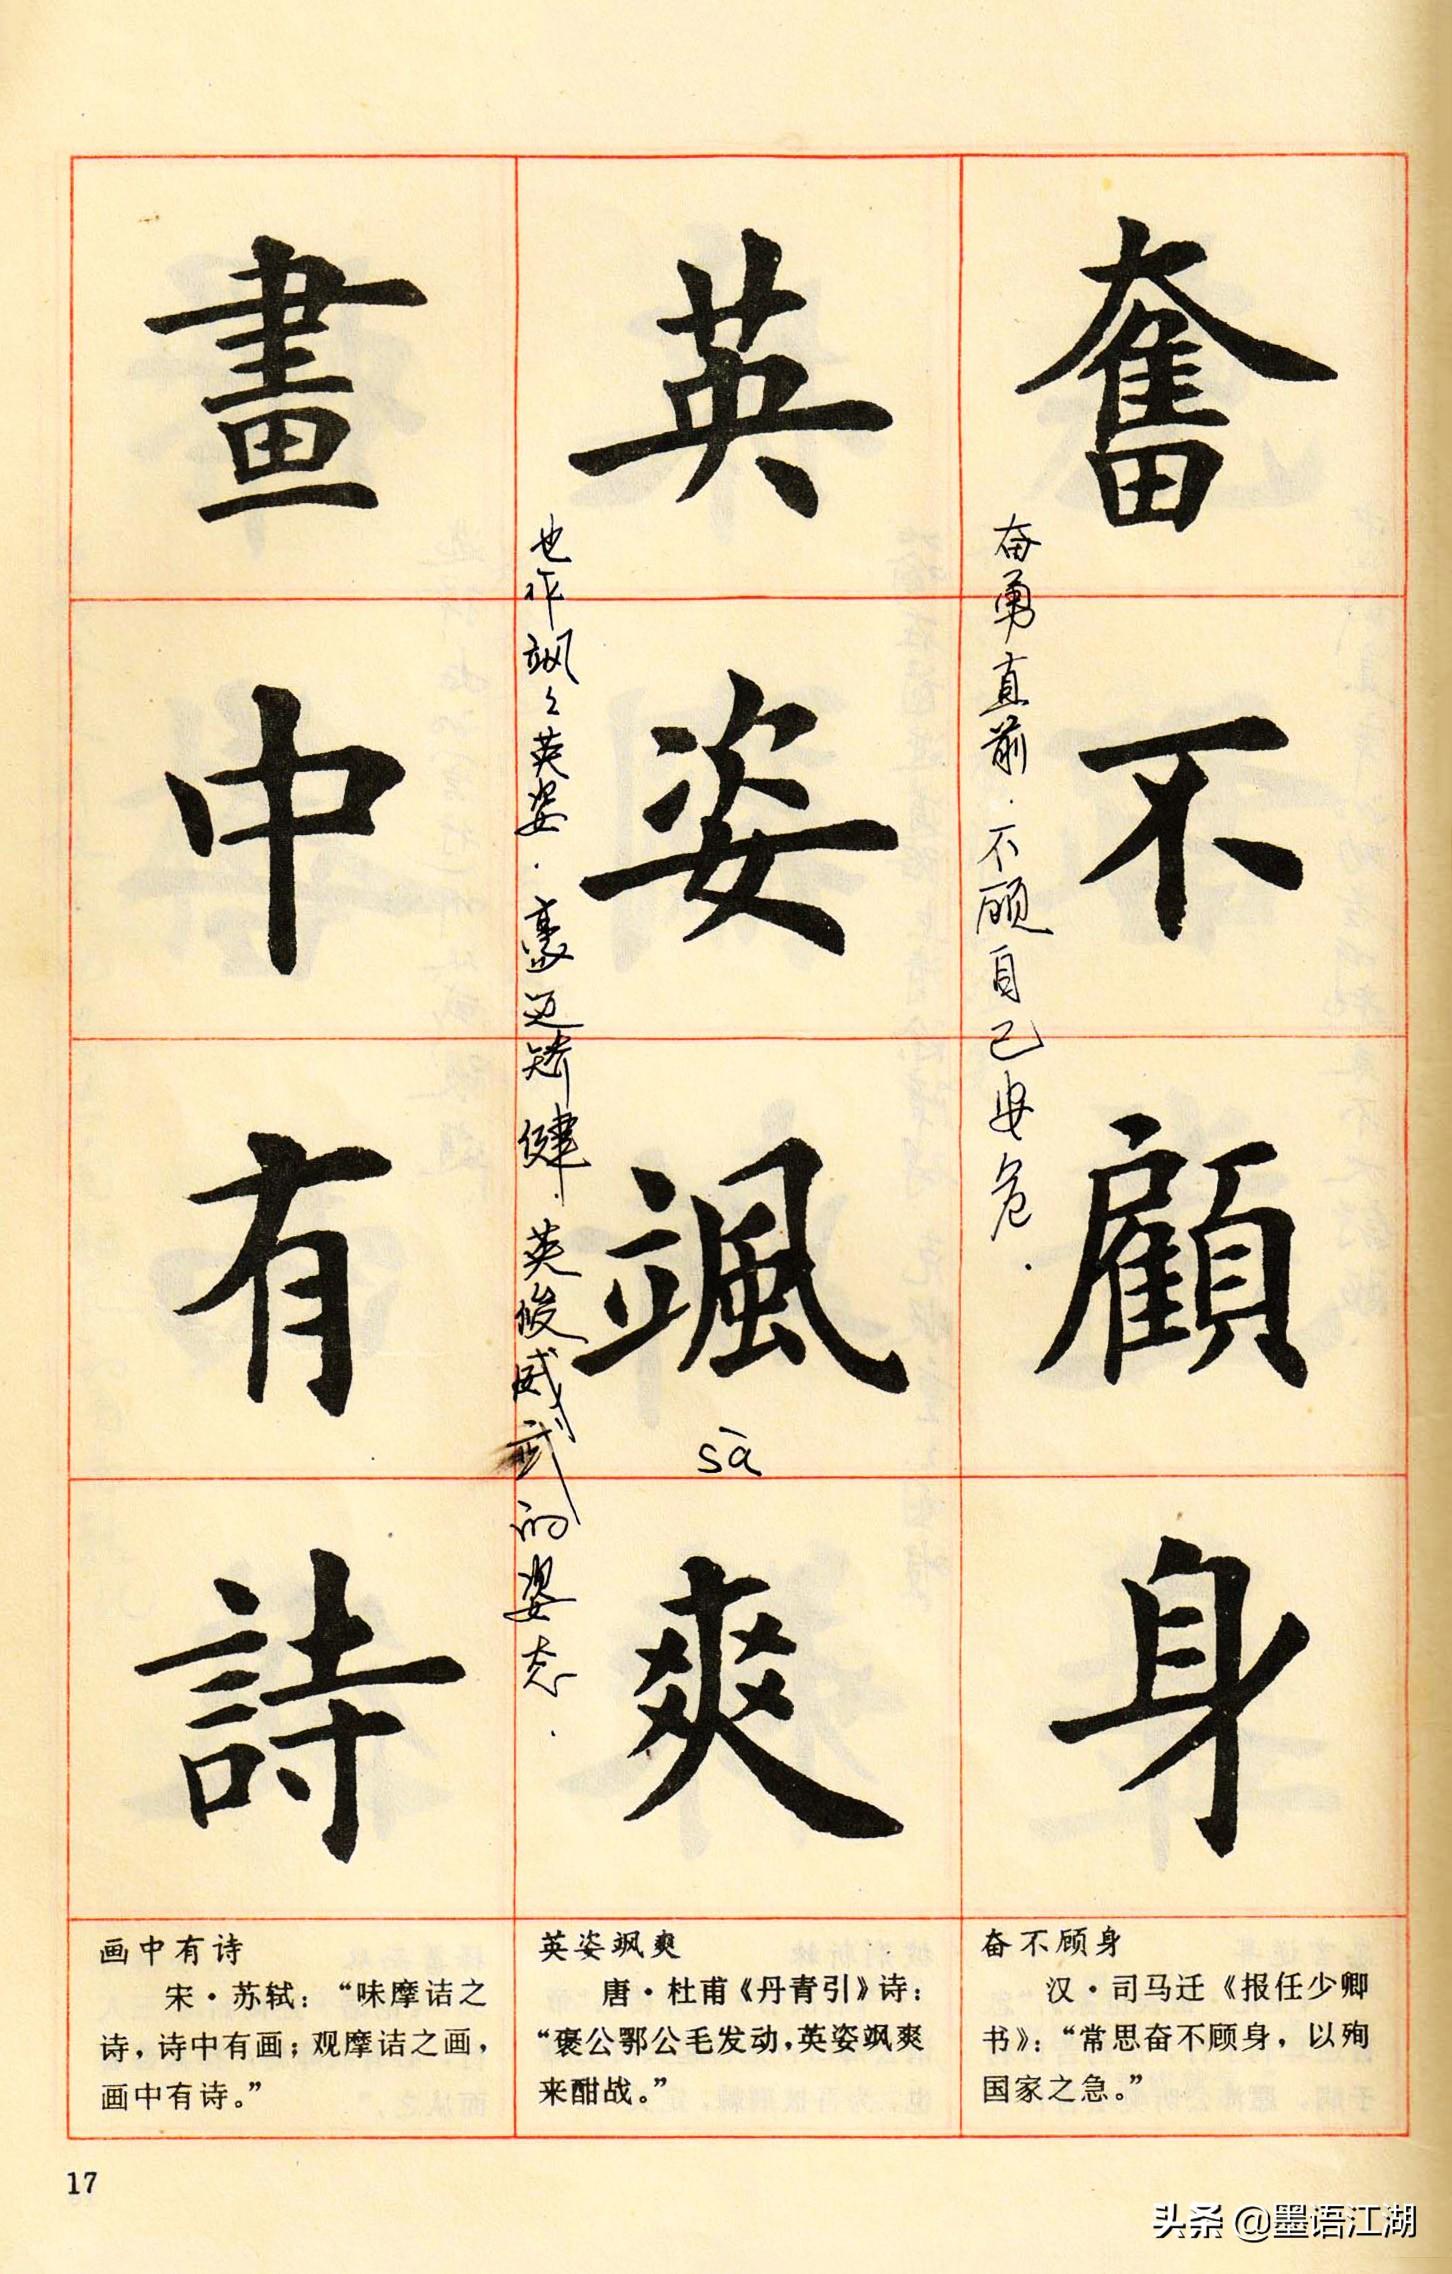 奮不顧身
奋勇直前．不顾自己安危．
英姿颯爽
sà
也作飒々英姿．豪迈矫健．英俊威武的姿态．
畫中有詩
奋不顾身
汉·司马迁《报任少卿
书》：“常思奋不顾身，以殉
国家之急。”
英姿飒爽
唐·杜甫《丹青引》诗：
“褒公鄂公毛发动，英姿飒爽
来酣战。”
画中有诗
宋·苏轼：“味摩诘之
诗，诗中有画；观摩诘之画，
画中有诗。”
17
头条 @墨语江湖